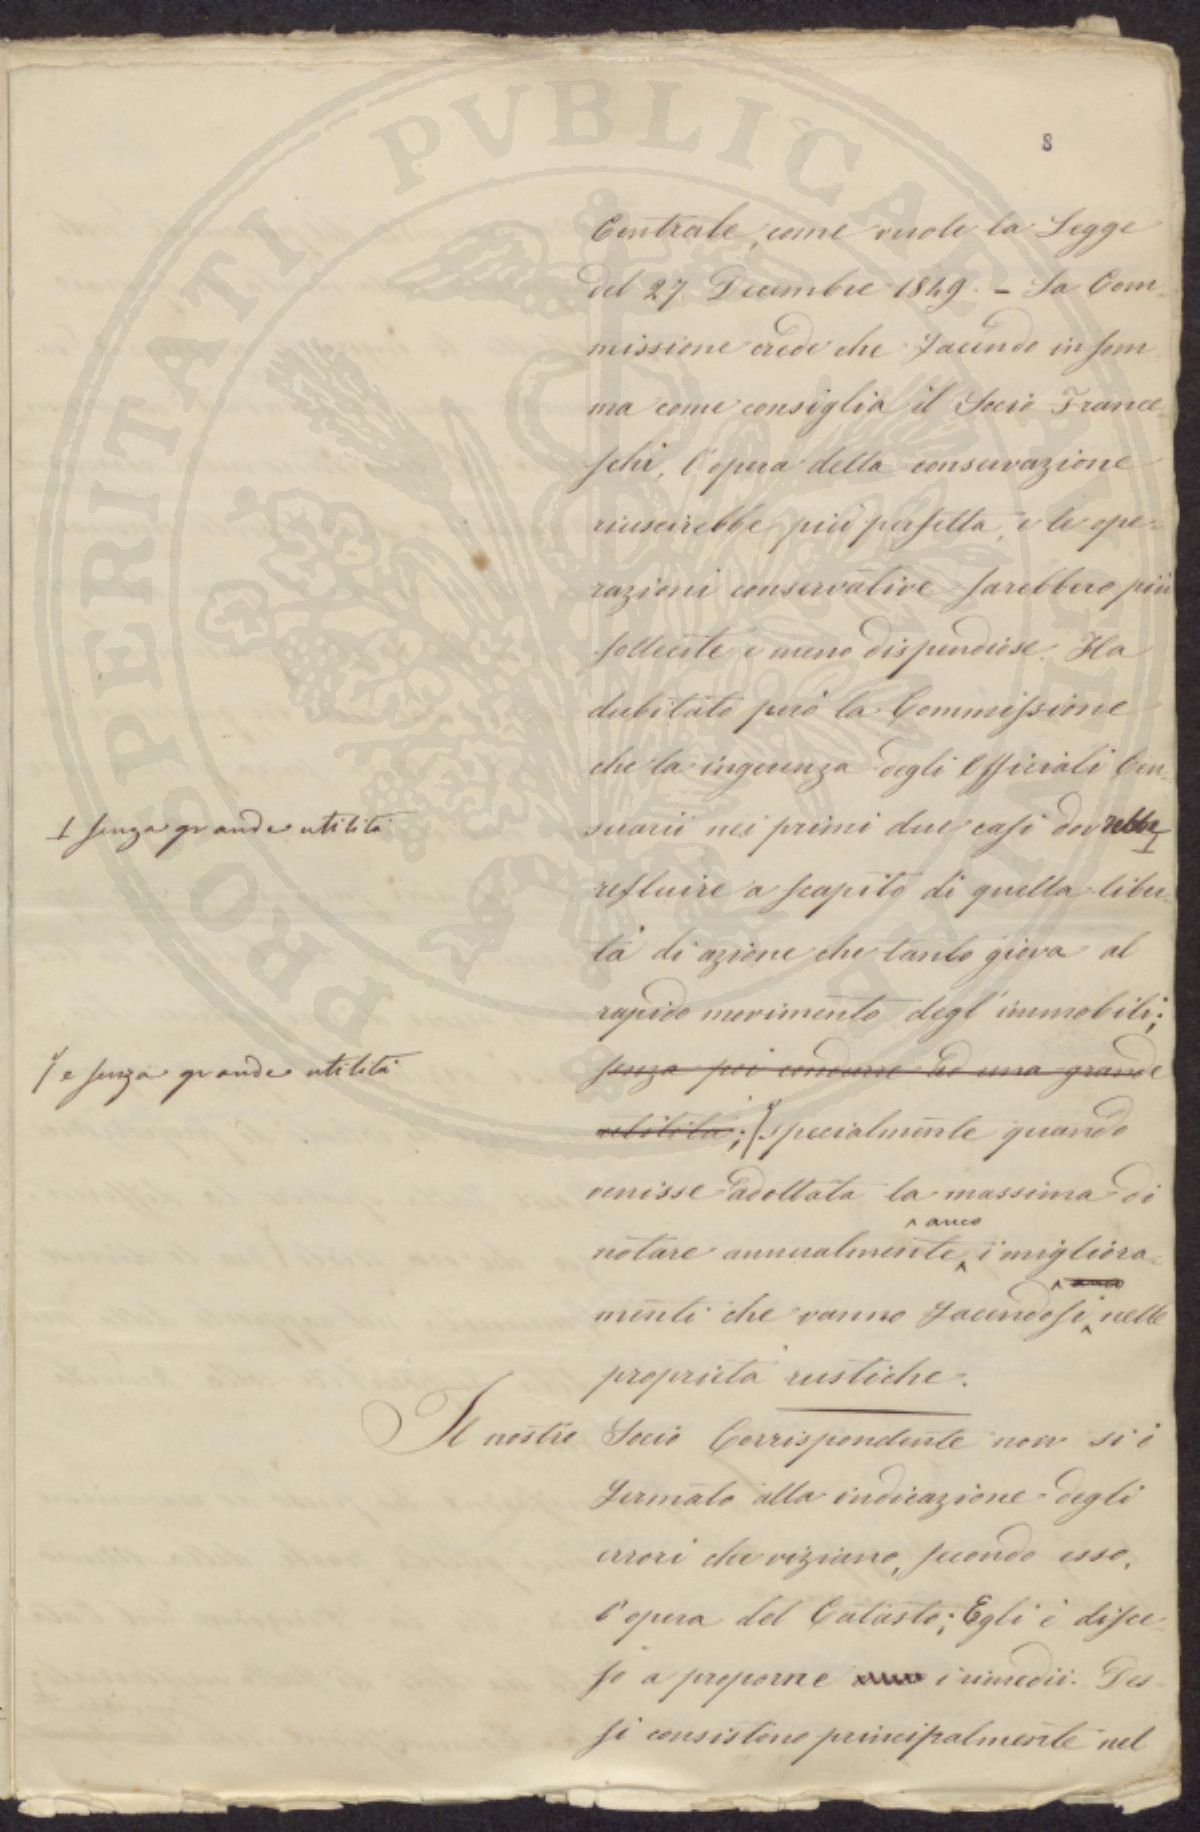 PROSPERITATI PVBLICAE
8
Centrale, come vuole la Legge
del 27. Decembre 1849. – La Com-
missione crede che facendo in som
ma come consiglia il Socio France-
schi, l'opera della conservazione
riuscirebbe più perfetta, e le ope-
razioni conservative sarebbero più
sollecite e meno dispendiose. Ha
dubitato però la Commissione
che la ingerenza degli Officiali Cen-
suarii nei primi due casi dovrebbe
⊥ senza grande utilità
refluire a scapito di quella liber-
tà di azione che tanto giova al
rapido movimento degl'immobili;
senza poi condurre ad una grande
/ e senza grande utilità
utilità; specialmente quando
venisse adottata la massima di
^ anco
notare annualmente, i migliora-
^ anco
menti che vanno facendosi nelle
proprietà rustiche.
Il nostro Socio Corrispondente non si è
fermato alla indicazione degli
errori che viziano, secondo esso,
l'opera del Catasto; Egli è disce-
so a proporne i rimedii. Des-
si consistono principalmente nel